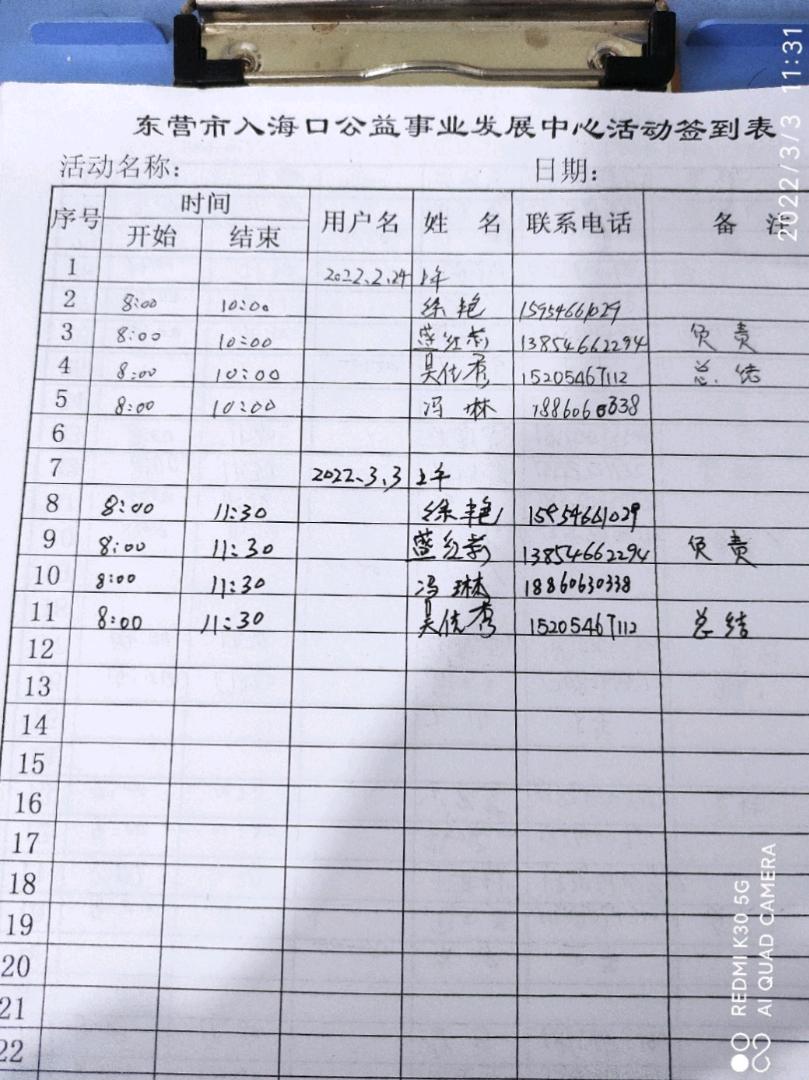 东营市入海口公益事业发展中心活动签到表
活动名称: 日期:
序号 时间 用户名 姓 名 联系电话 备 注
开始 结束
1 2022.2.24 上午
2 8:00 10:00 徐艳 15954661029
3 8:00 10:00 13854662294 负责
4 8:00 10:00 吴优秀 15205467112 总结
5 8:00 10:00 冯琳
6
7 2022.3.3 上午
8 8:00 11:30 徐艳 15954661029
9 8:00 11:30 13854662294 负责
10 8:00 11:30 冯琳 18860630338
11 8:00 11:30 吴优秀 15205467112 总结
12
13
14
15
16
17
18
19
20
21
22
2022/3/3 11:31
REDMI K30 5G
AI QUAD CAMERA